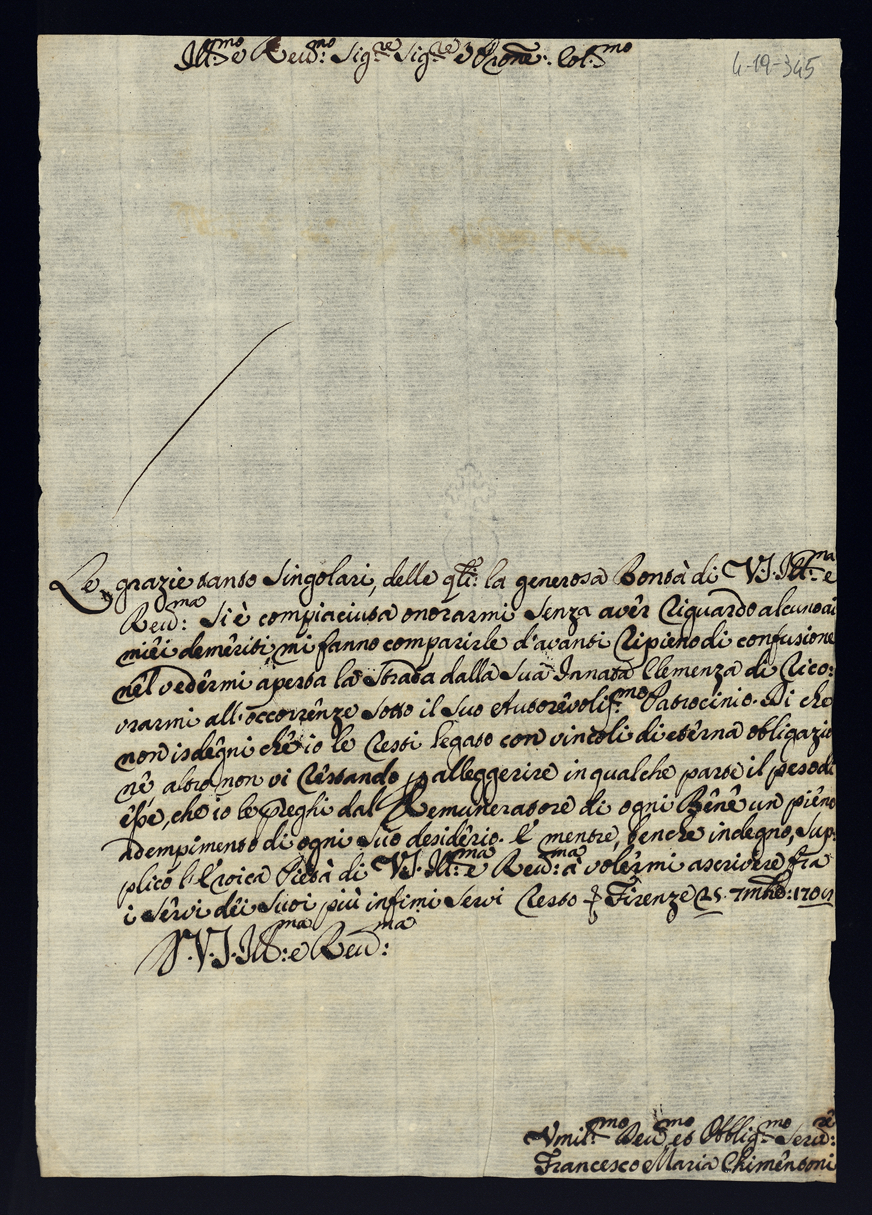 Ill:mo e Reud:mo Sig:re Sig:re e Prone: Col:mo
4-19-345
Le grazie tanto Singolari, delle qli: la generosa Bontà di V.S. Ill:ma e
Reud:ma si è compiaciuta onorarmi senza avêr riguardo alcuno ai
miêi demêriti mi fanno comparirle d'avanti ripieno di confusione
nêl vedêrmi aperta la strada dalla sua Innata Clemenza di rico:
vrarmi all'occorrênze sotto il suo Autorêvolis:mo Patrocinio. Di che
non isdêgni chê io le resti legato con vincoli di etêrna obligazio
nê altro non vi rêstando p alleggerire in qualche parte il peso di
êsse, che io le preghi dal Remuneratore di ogni Bênê un piêno
adempimento di ogni suo desidêrio. E mentre, benche indegno, sup:
plico l'Eroica Pietà di V.S. Ill:ma e Reud:ma à volêrmi ascrivere fra
i sêrvi dêi suoi più infimi servi resto Firenze 25. 7mbre: 170
D. V.S. Ill:ma e Reud:ma
Vmil:mo Deu:mo et Obblig:mo Seru:rê
Francesco Maria Chimêntoni